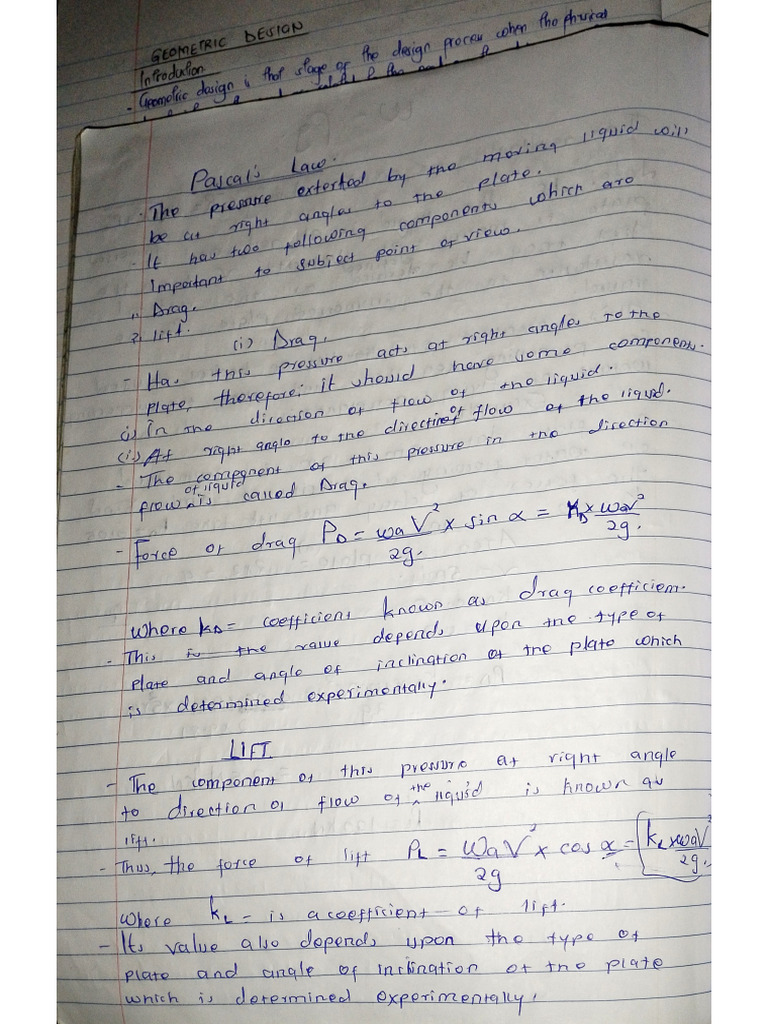 GEOMETRIC DESIGN
Introduction
- Geometric design is that stage of the design process when the physical
Pascal's Law.
- The pressure exterted by the moving liquid will
be at right angles to the plate.
- It has two following components which are
Important to subject point of view.
1, Drag.
2, lift.
(i) Drag.
- Has this pressure acts at right angles to the
plate, therefore; it should have some components.
(i) In the direction of flow of the liquid.
(ii) At right angle to the direction of flow of the liquid.
- The component of this pressure in the direction
flow of liquid is called Drag.
- Force of drag P_D = waV²/2g. x sin α = K_D x waV²/2g.
where K_D = coefficient known as drag coefficient.
- This is the value depends upon the type of
plate and angle of inclination of the plate which
is determined experimentally.
LIFT
- The component of this pressure at right angle
to direction of flow of the liquid is known as
lift.
- Thus, the force of lift P_L = WaV²/2g x cos α = K_L x waV²/2g.
where K_L = is a coefficient of lift.
- Its value also depends upon the type of
plate and angle of inclination of the plate
which is determined experimentally.